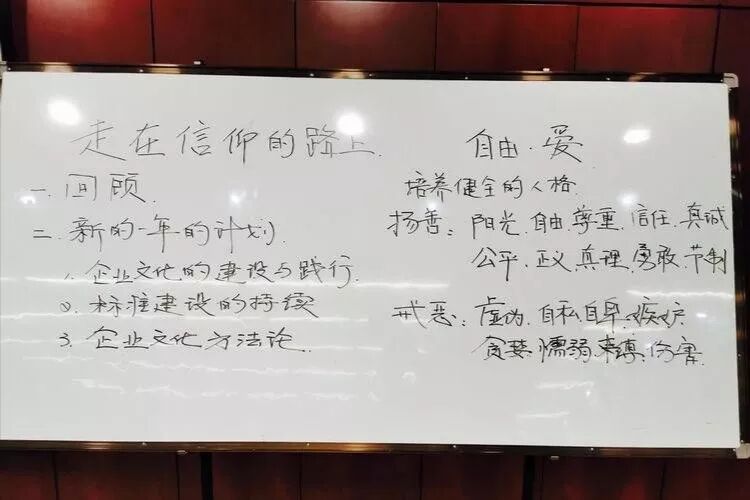 走在信仰的路上.
一.回顾.
二.新的一年的计划.
1.企业文化的建设与践行.
2.标准建设的持续
3.企业文化方法论.
自由.爱
培养健全的人格.
扬善:阳光.自由.尊重.信任.真诚
公平.正义.真理.勇敢.节制
戒恶:虚伪.自私自卑.嫉妒
贪婪.懦弱.束缚.伤害.